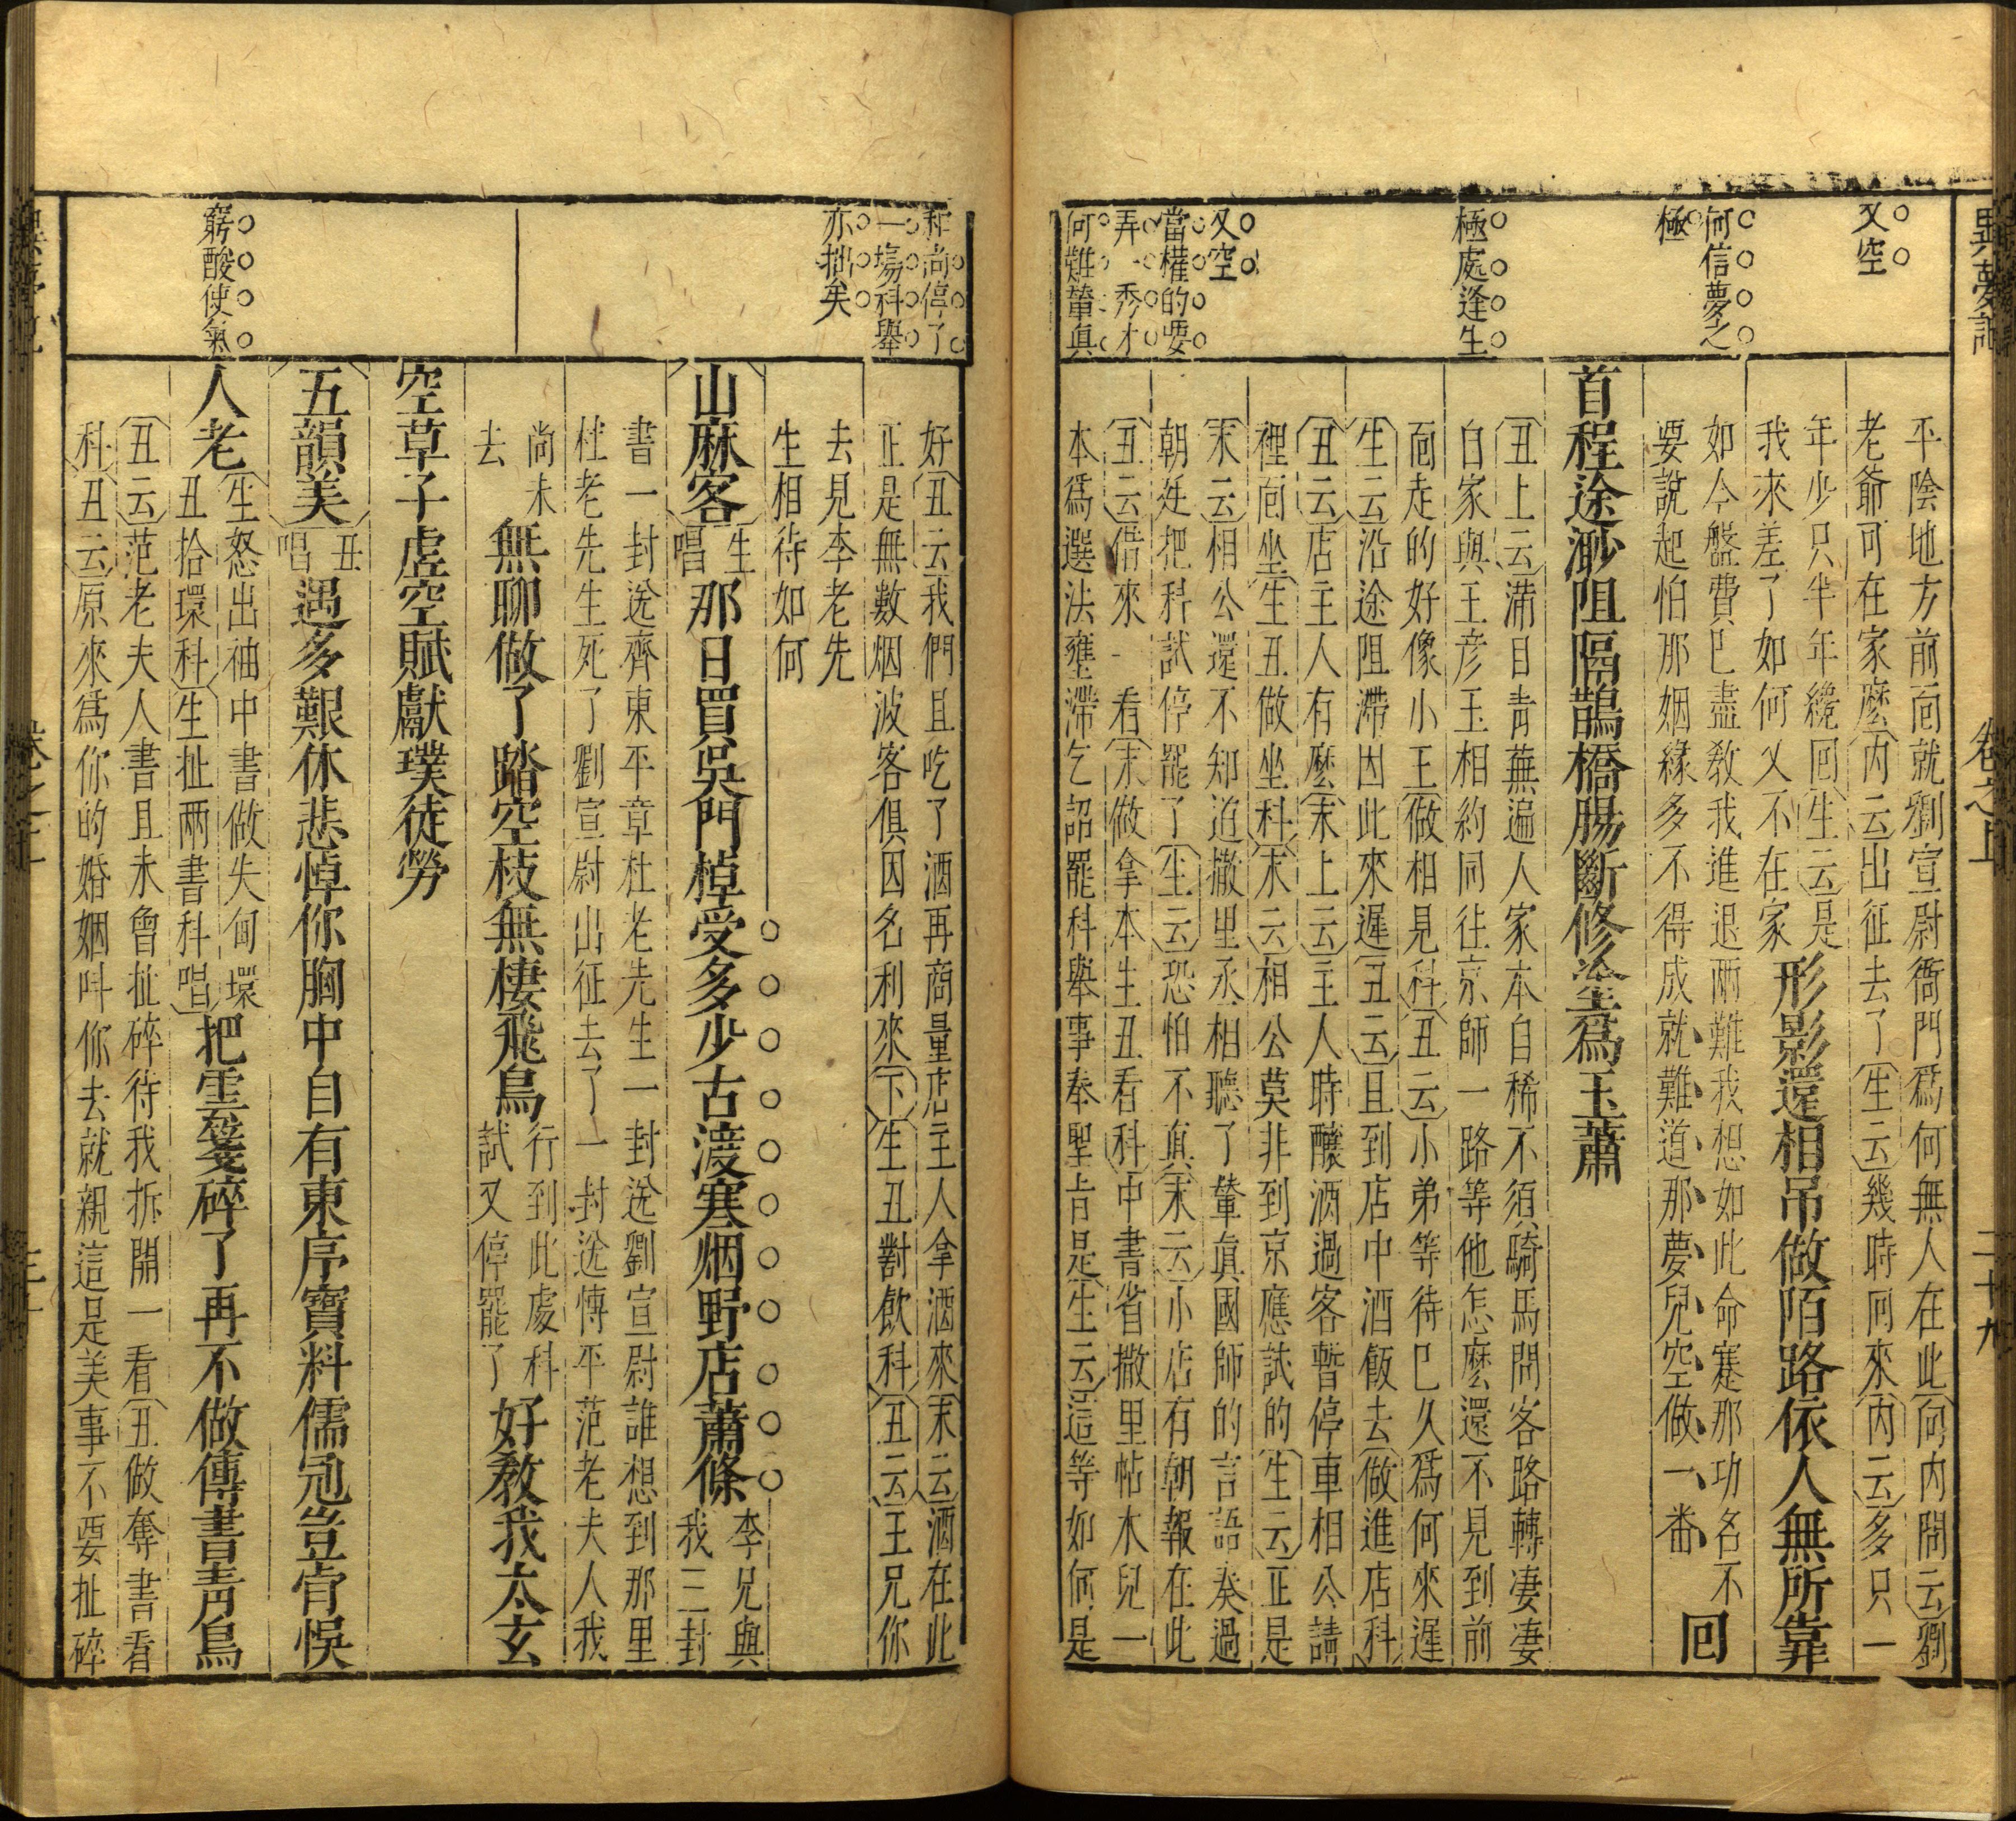 異夢記
卷之上
二十九
又空
何信夢之
極
極處逢生
又空
當權的要
弄一秀才
何難輦眞
平陰地方前面就劉宣尉衙門爲何無人在此〔向内問云〕劉
老爺可在家麽〔内云〕出征去了〔生云〕幾時回來〔内云〕多只一
年少只半年纔回〔生云〕是
我來差了如何又不在家
形影還相吊做陌路依人無所靠
如今盤費已盡教我進退兩難我想如此命蹇那功名不
要說起怕那姻緣多不得成就難道那夢兒空做一番
回
首程途渺阻隔鵲橋腸斷修塗爲玉蕭
〔丑上云〕滿目青蕪遍人家本自稀不須騎馬問客路轉凄凄
自家與王彦玉相約同往京師一路等他怎麽還不見到前
面走的好像小王〔做相見科〕〔丑云〕小弟等待已久爲何來遲
〔生云〕沿途阻滯因此來遲〔丑云〕且到店中酒飯去〔做進店科〕
〔丑云〕店主人有麽〔末上云〕主人時釀酒過客暫停車相公請
裡面坐〔生丑做坐科〕〔末云〕相公莫非到京應試的〔生云〕正是
〔末云〕相公還不知迫撒里丞相聽了輦眞國師的言語奏過
朝廷把科試停罷了〔生云〕恐怕不眞〔末云〕小店有朝報在此
〔丑云〕借來一看〔末做拿本生丑看科〕中書省撒里帖木兒一
本爲選法壅滯乞詔罷科舉事奉聖旨是〔生云〕這等如何是
和尚停了
一場科舉
亦拙矣
窮酸使氣
好〔丑云〕我們且吃了酒再商量店主人拿酒來〔末云〕酒在此
正是無數烟波客俱因名利來〔下〕〔生丑對飲科〕〔丑云〕王兄你
去見李老先
生相待如何
〔山麻客〕〔生唱〕那日買吳門棹受多少古渡寒烟野店蕭條
李兄與
我三封
書一封送齊東平章杜老先生一封送劉宣尉誰想到那里
杜老先生死了劉宣尉出征去了一封送博平范老夫人我
尚未
去
無聊做了踏空枝無棲飛鳥
行到此處科
試又停罷了
好教我太玄
空草子虛空賦獻璞徒勞
〔五韻美〕〔丑唱〕遇多艱休悲悼你胸中自有東序寶料儒冠豈肯悞
人老
〔生怒出袖中書做失甸環
丑拾環科〕〔生扯兩書科唱〕
把雲箋碎了再不做傳書青鳥
〔丑云〕范老夫人書且未曾扯碎待我拆開一看〔丑做奪書看
科〕〔丑云〕原來爲你的婚姻呌你去就親這是美事不要扯碎